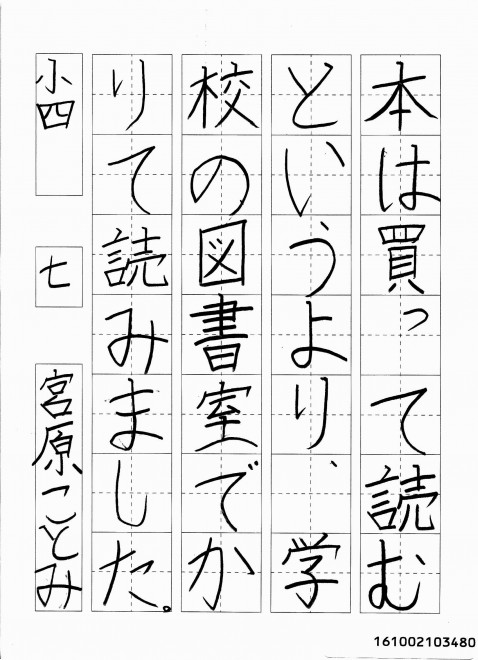 本は買って読む
というより、学
校の図書室でか
りて読みました。
小四 七 宮原ことみ
161002103480